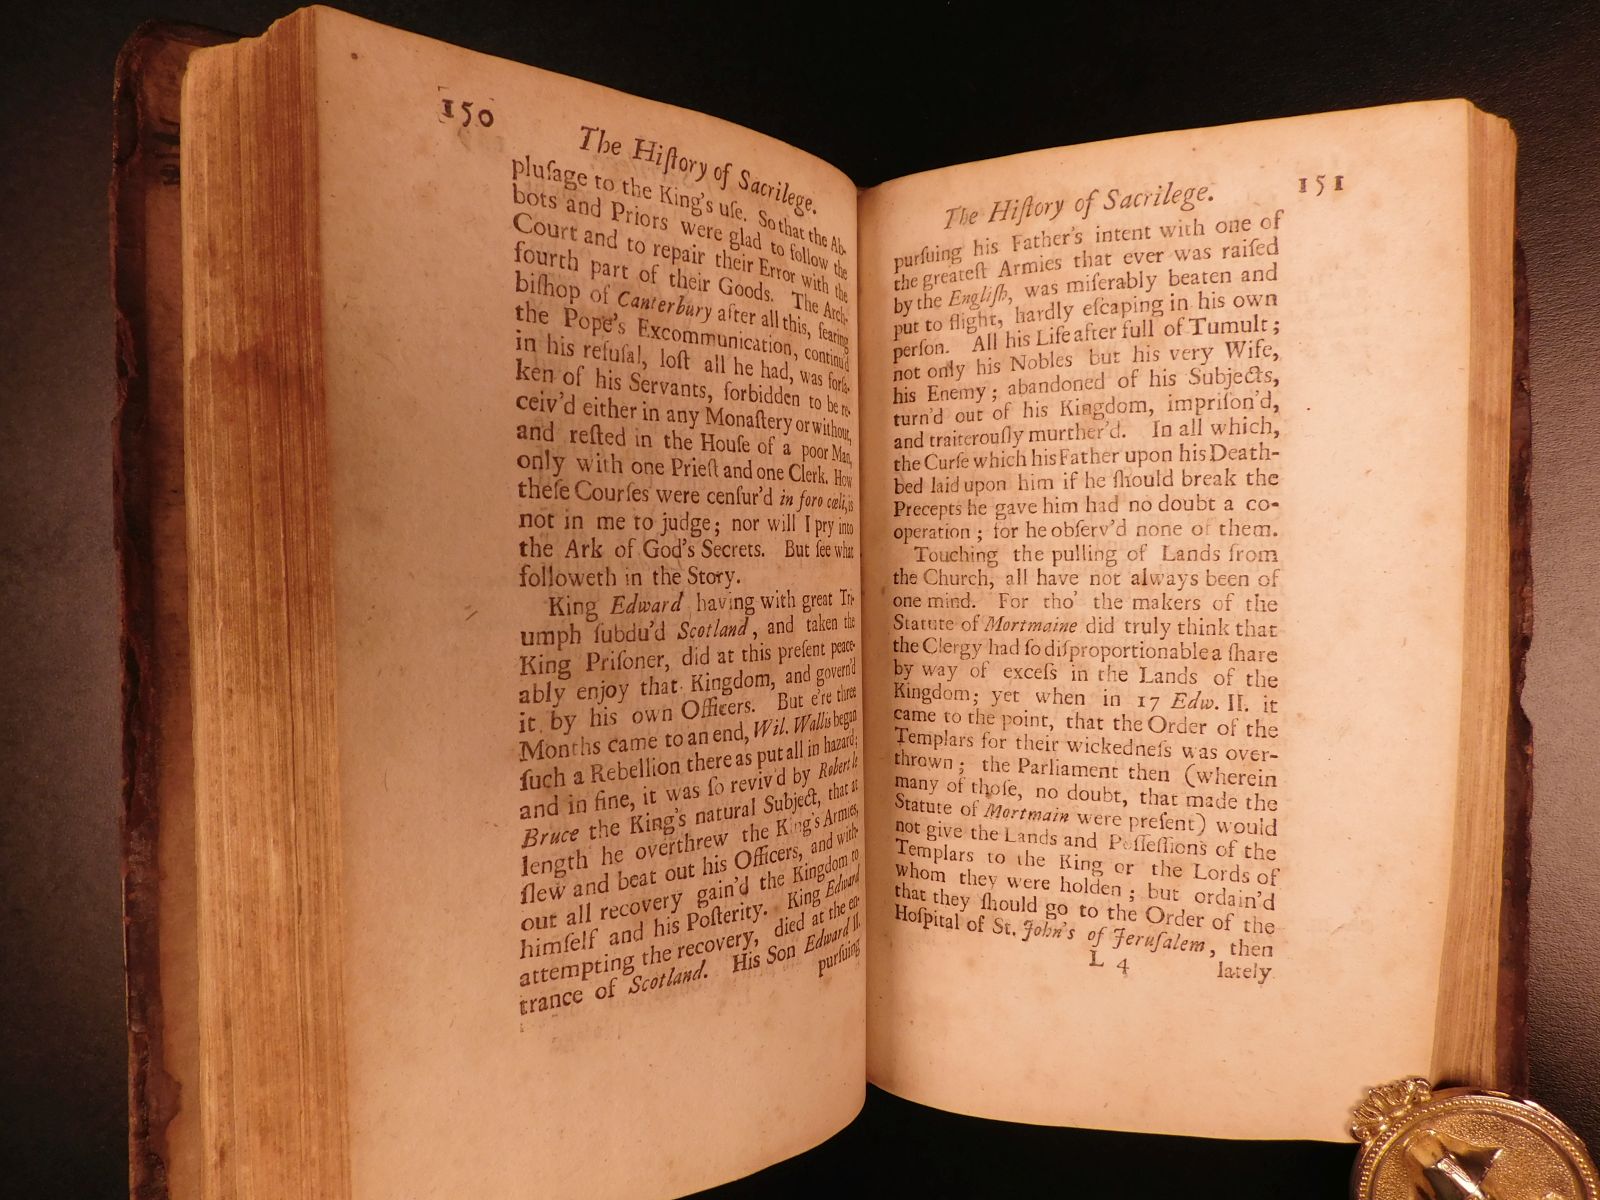 150
The Hiſtory of Sacrilege.
pluſage to the King's uſe. So that the Ab-
bots and Priors were glad to follow the
Court and to repair their Error with the
fourth part of their Goods. The Arch-
biſhop of Canterbury after all this, fearing
the Pope's Excommunication, continu'd
in his refuſal, loſt all he had, was forſa-
ken of his Servants, forbidden to be re-
ceiv'd either in any Monaſtery or without,
and reſted in the Houſe of a poor Man,
only with one Prieſt and one Clerk. How
theſe Courſes were cenſur'd in foro cœli, is
not in me to judge; nor will I pry into
the Ark of God's Secrets. But ſee what
followeth in the Story.
King Edward having with great Tri-
umph ſubdu'd Scotland, and taken the
King Priſoner, did at this preſent peace-
ably enjoy that Kingdom, and govern'd
it by his own Officers. But e're three
Months came to an end, Wil. Wallis began
ſuch a Rebellion there as put all in hazard;
and in fine, it was ſo reviv'd by Robert le
Bruce the King's natural Subject, that at
length he overthrew the King's Armies,
ſlew and beat out his Officers, and with-
out all recovery gain'd the Kingdom to
himſelf and his Poſterity. King Edward
attempting the recovery, died at the en-
trance of Scotland. His Son Edward II.
purſuing
The Hiſtory of Sacrilege. 151
purſuing his Father's intent with one of
the greateſt Armies that ever was raiſed
by the Engliſh, was miſerably beaten and
put to flight, hardly eſcaping in his own
perſon. All his Life after full of Tumult;
not only his Nobles but his very Wife,
his Enemy; abandoned of his Subjects,
turn'd out of his Kingdom, impriſon'd,
and traiterouſly murther'd. In all which,
the Curſe which his Father upon his Death-
bed laid upon him if he ſhould break the
Precepts he gave him had no doubt a co-
operation; for he obſerv'd none of them.
Touching the pulling of Lands from
the Church, all have not always been of
one mind. For tho' the makers of the
Statute of Mortmaine did truly think that
the Clergy had ſo diſproportionable a ſhare
by way of exceſs in the Lands of the
Kingdom; yet when in 17 Edw. II. it
came to the point, that the Order of the
Templars for their wickedneſs was over-
thrown; the Parliament then (wherein
many of thoſe, no doubt, that made the
Statute of Mortmain were preſent) would
not give the Lands and Poſſeſſions of the
Templars to the King or the Lords of
whom they were holden; but ordain'd
that they ſhould go to the Order of the
Hoſpital of St. John's of Jeruſalem, then
L 4 lately